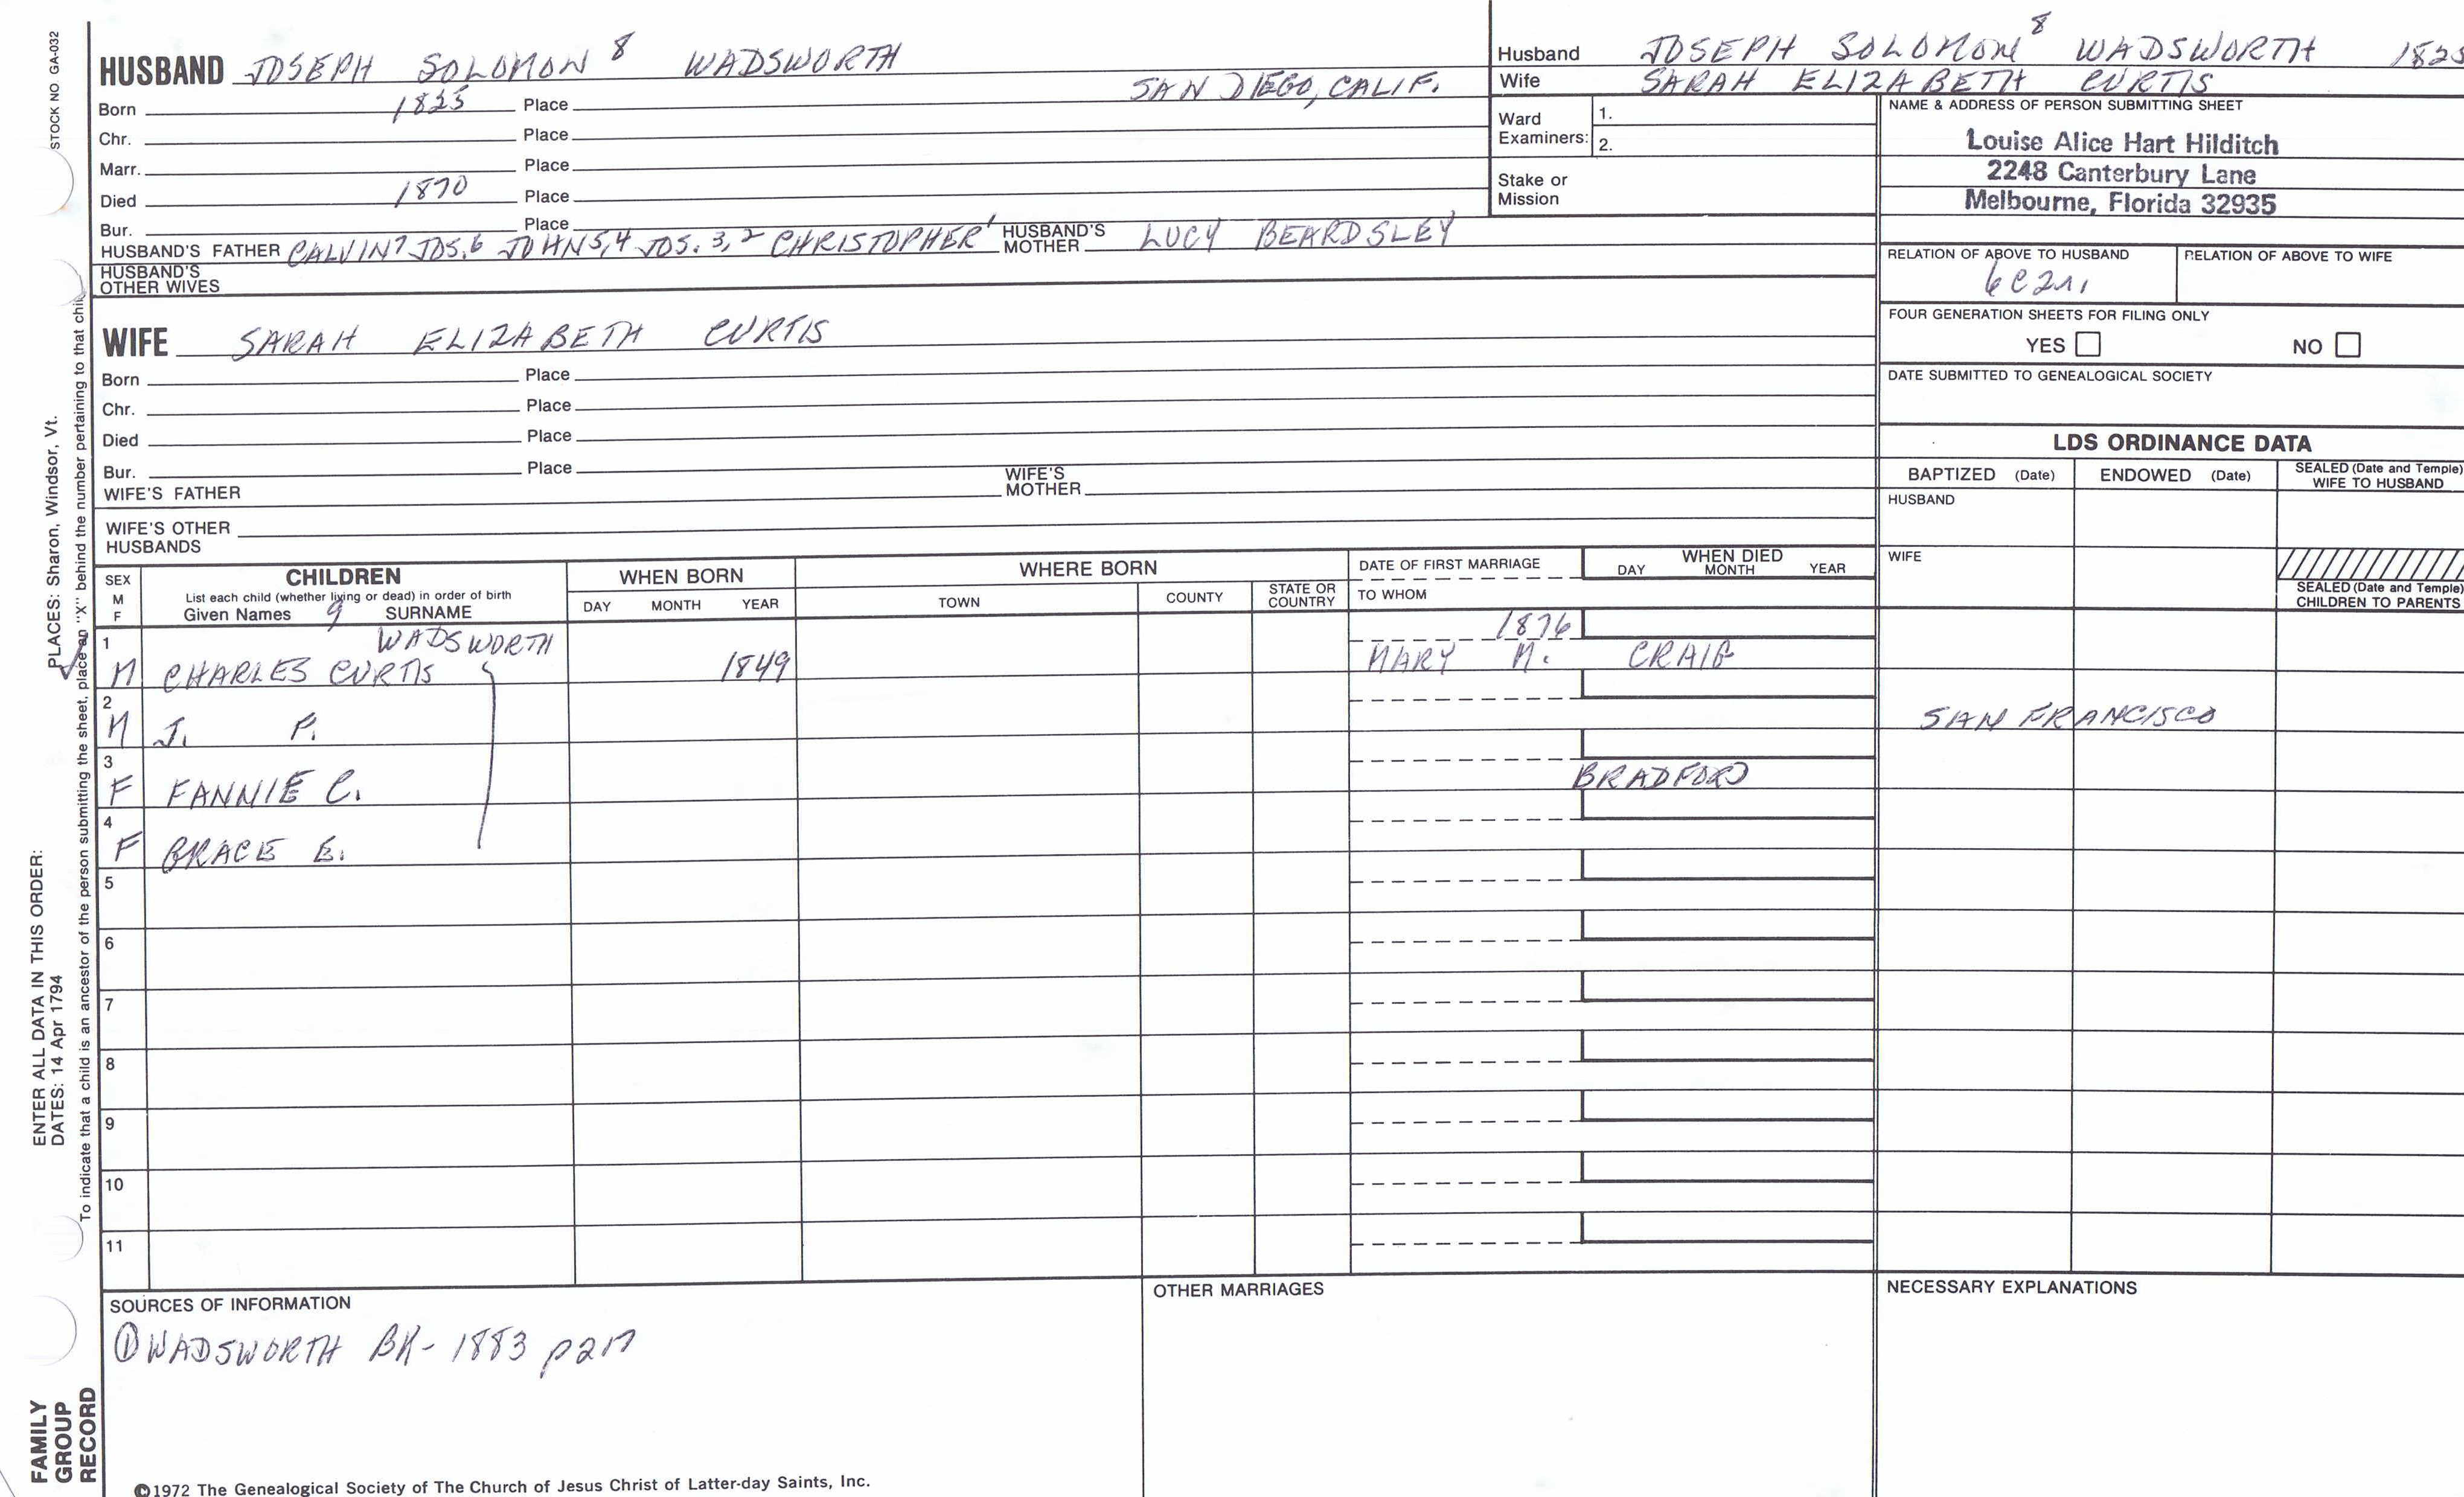 STOCK NO GA-032
HUSBAND JOSEPH SOLOMON 8 WADSWORTH
Born 1825 Place SAN DIEGO, CALIF.
Chr. Place
Marr. Place
Died 1870 Place
Bur. Place
HUSBAND'S FATHER CALVIN 7 JOS. 6 JOHN 5,4 JOS. 3,2 CHRISTOPHER 1 HUSBAND'S MOTHER LUCY BEARDSLEY
HUSBAND'S OTHER WIVES
WIFE SARAH ELIZABETH CURTIS
Born Place
Chr. Place
Died Place
Bur. Place
WIFE'S FATHER WIFE'S MOTHER
WIFE'S OTHER HUSBANDS
Husband JOSEPH SOLOMON 8 WADSWORTH 1825
Wife SARAH ELIZABETH CURTIS
Ward Examiners: 1.
2.
Stake or Mission
NAME & ADDRESS OF PERSON SUBMITTING SHEET
Louise Alice Hart Hilditch
2248 Canterbury Lane
Melbourne, Florida 32935
RELATION OF ABOVE TO HUSBAND RELATION OF ABOVE TO WIFE
6C2r.
FOUR GENERATION SHEETS FOR FILING ONLY
YES NO
DATE SUBMITTED TO GENEALOGICAL SOCIETY
LDS ORDINANCE DATA
BAPTIZED (Date) ENDOWED (Date) SEALED (Date and Temple) WIFE TO HUSBAND
HUSBAND
WIFE
SEALED (Date and Temple) CHILDREN TO PARENTS
SEX M F CHILDREN WHEN BORN WHERE BORN DATE OF FIRST MARRIAGE WHEN DIED
List each child (whether living or dead) in order of birth
Given Names 9 SURNAME DAY MONTH YEAR TOWN COUNTY STATE OR COUNTRY TO WHOM DAY MONTH YEAR
1 WADSWORTH 1876
M CHARLES CURTIS 1849 MARY M. CRAIG
2
M J. P. SAN FRANCISCO
3
F FANNIE C. BRADFORD
4
F GRACE E.
5
6
7
8
9
10
11
SOURCES OF INFORMATION OTHER MARRIAGES NECESSARY EXPLANATIONS
① WADSWORTH BK- 1883
©1972 The Genealogical Society of The Church of Jesus Christ of Latter-day Saints, Inc.
FAMILY GROUP RECORD
ENTER ALL DATA IN THIS ORDER:
DATES: 14 Apr 1794
PLACES: Sharon, Windsor, Vt.
To indicate that a child is an ancestor of the person submitting the sheet, place an "X" behind the number pertaining to that